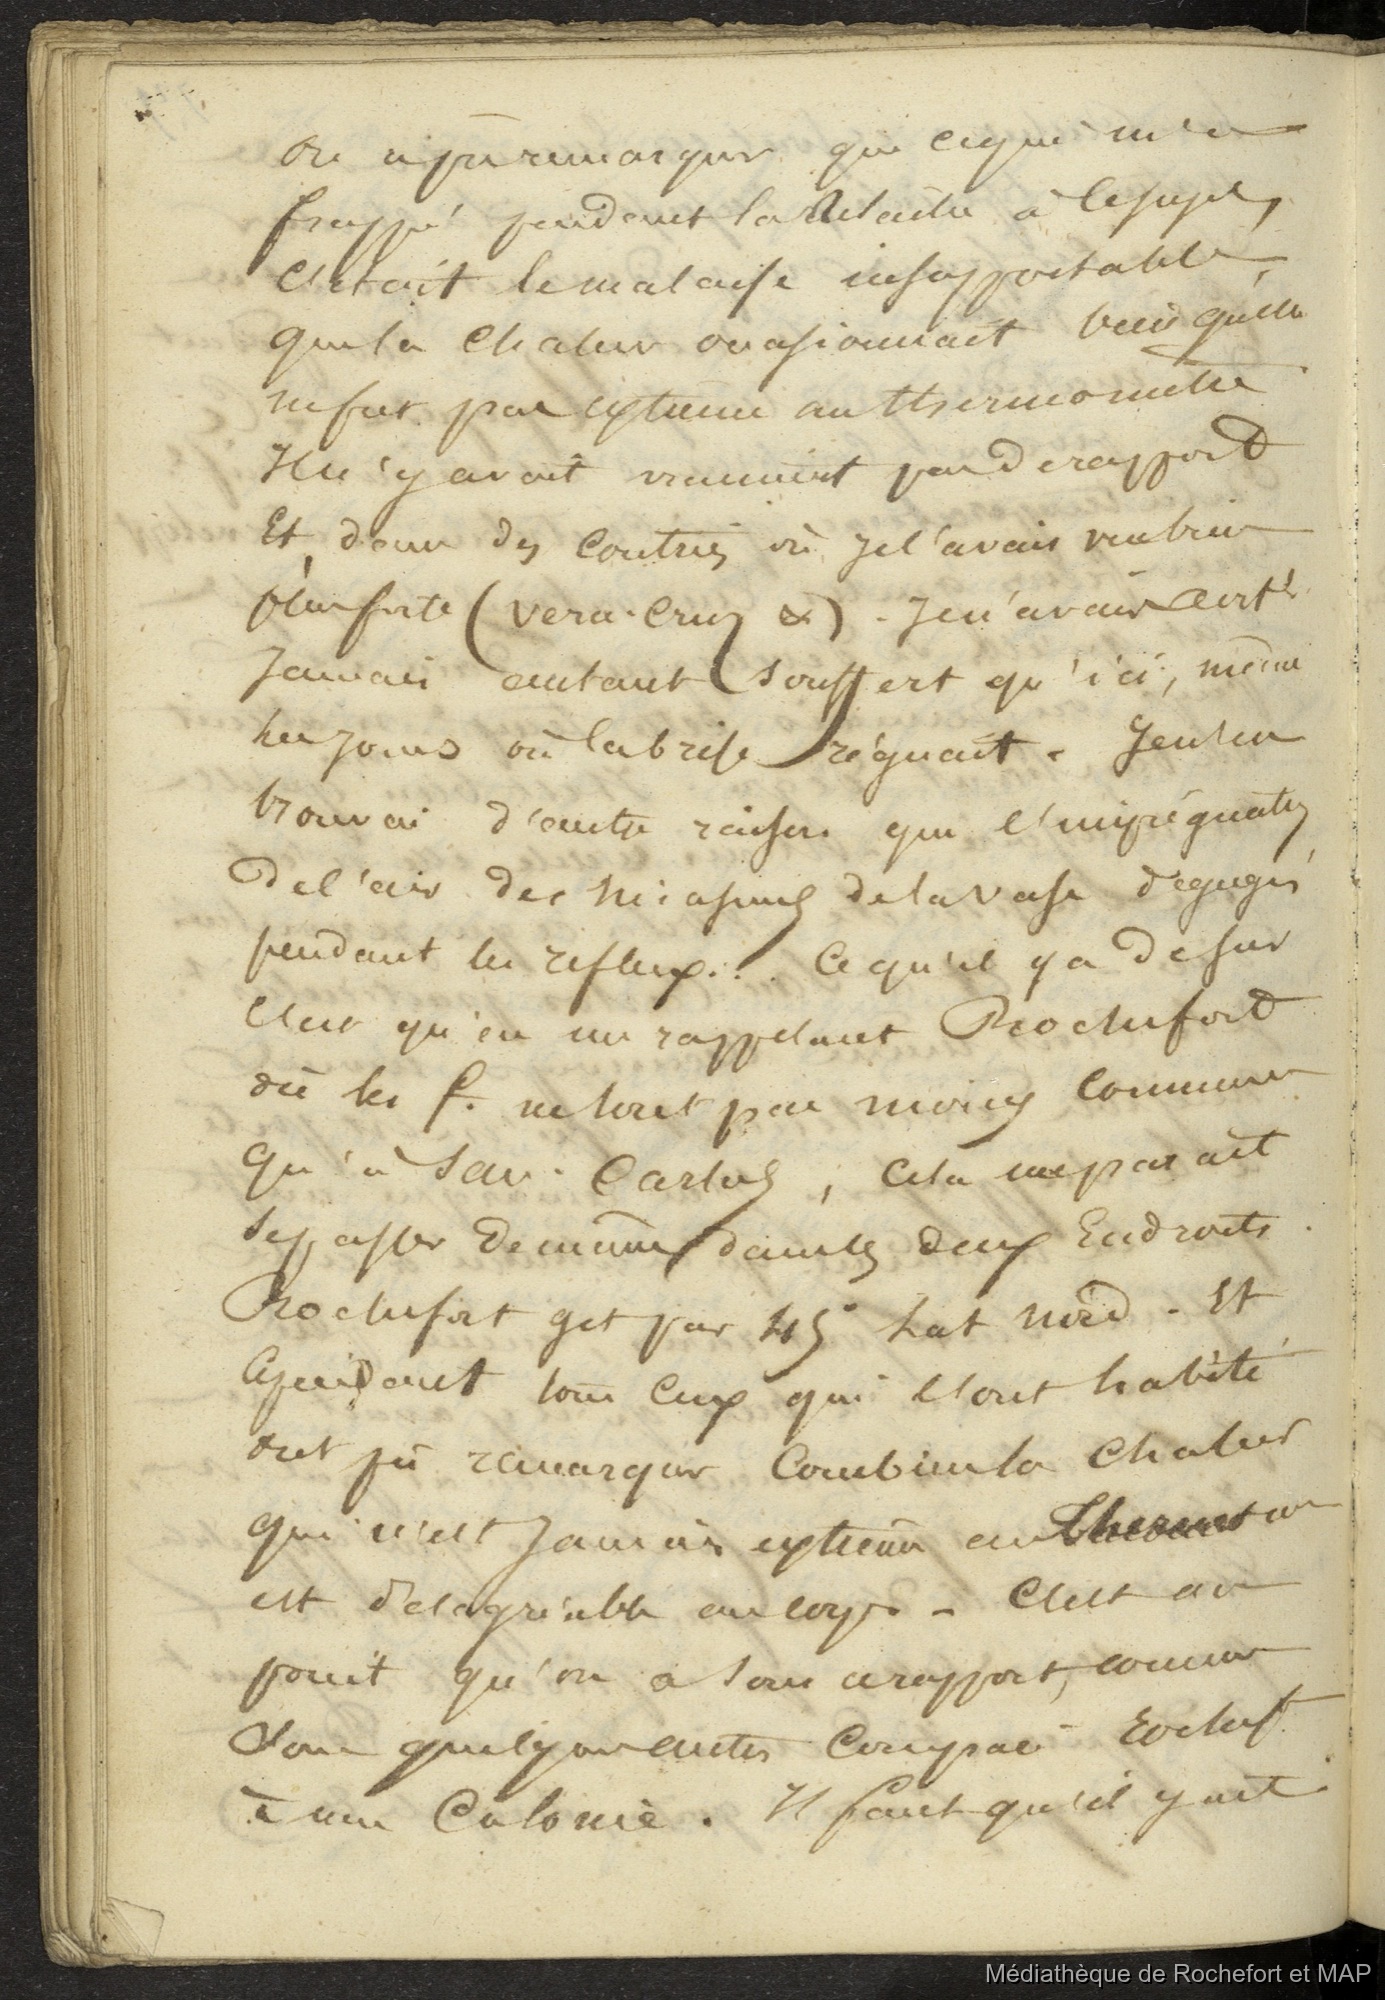 on a pu remarquer que ce qui m'a
frappé pendant la Relache à
C'était le malaise insupportable
que la Chaleur ocasionnait bien qu'elle
ne fut pas extreme au thermometre
Il n'y avait vraiment pas de rapport
Et, dans des Contrées où je l'avais vu bien
plus forte (Vera-Cruz &) . Je n'avais certes
Jamais autant souffert qu'ici, même
les jours où la brise régnait . Je ne
trouvai d'autre raison que l'imprégnation
De l'air des Miasmes de la Vase dégagés
pendant les reflux... Ce qu'il y a de sur
C'est qu'en me rappelant Rochefort
où les f. ne sont pas moins Communes
Qu'à San-Carlos, Cela me parait
se passer De même dans les deux Endroits .
Rochefort git par 45° Lat Nord . Et
Cependant tous Ceux qui l'ont habité
ont pu remarquer Combien la Chaleur
qui n'est Jamais extreme au Thermom
est désagréable au corps - C'est au
point qu'on a sous ce rapport, comme
sous quelques autres Comparé Rochef.t
à une Colonie . Il faut qu'il y ait
Médiathèque de Rochefort et MAP